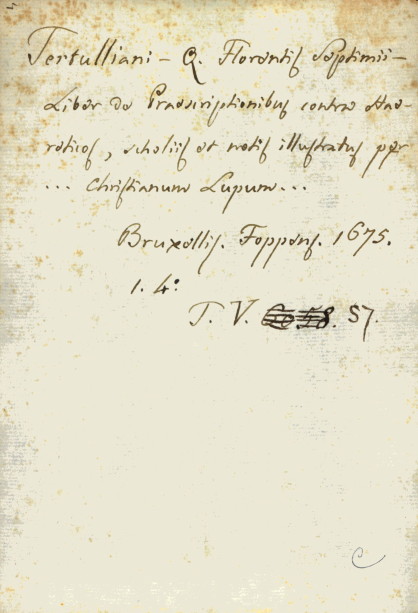 Tertulliani – Q. Florentis Septimii –
Liber de Praescriptionibus contra Hae-
reticos, scholiis et notis illustratus per
... Christianum Lupum ...
Bruxellis. Foppens. 1675.
1. 4°
T. V. 57.
C